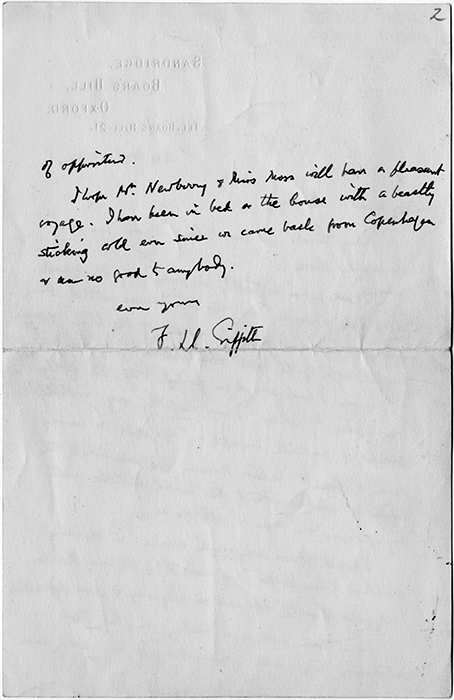 2
SANDRIDGE,
BOARS HILL,
OXFORD.
TEL. BOARS HILL 21.
of
I hope Mr. Newberry & Miss Moss will have a pleasant
voyage. I have been in bed or the house with a beastly
sticking cold ever since we came back from Copenhagen
& am no good to anybody.
ever yours
F. Ll. Griffith